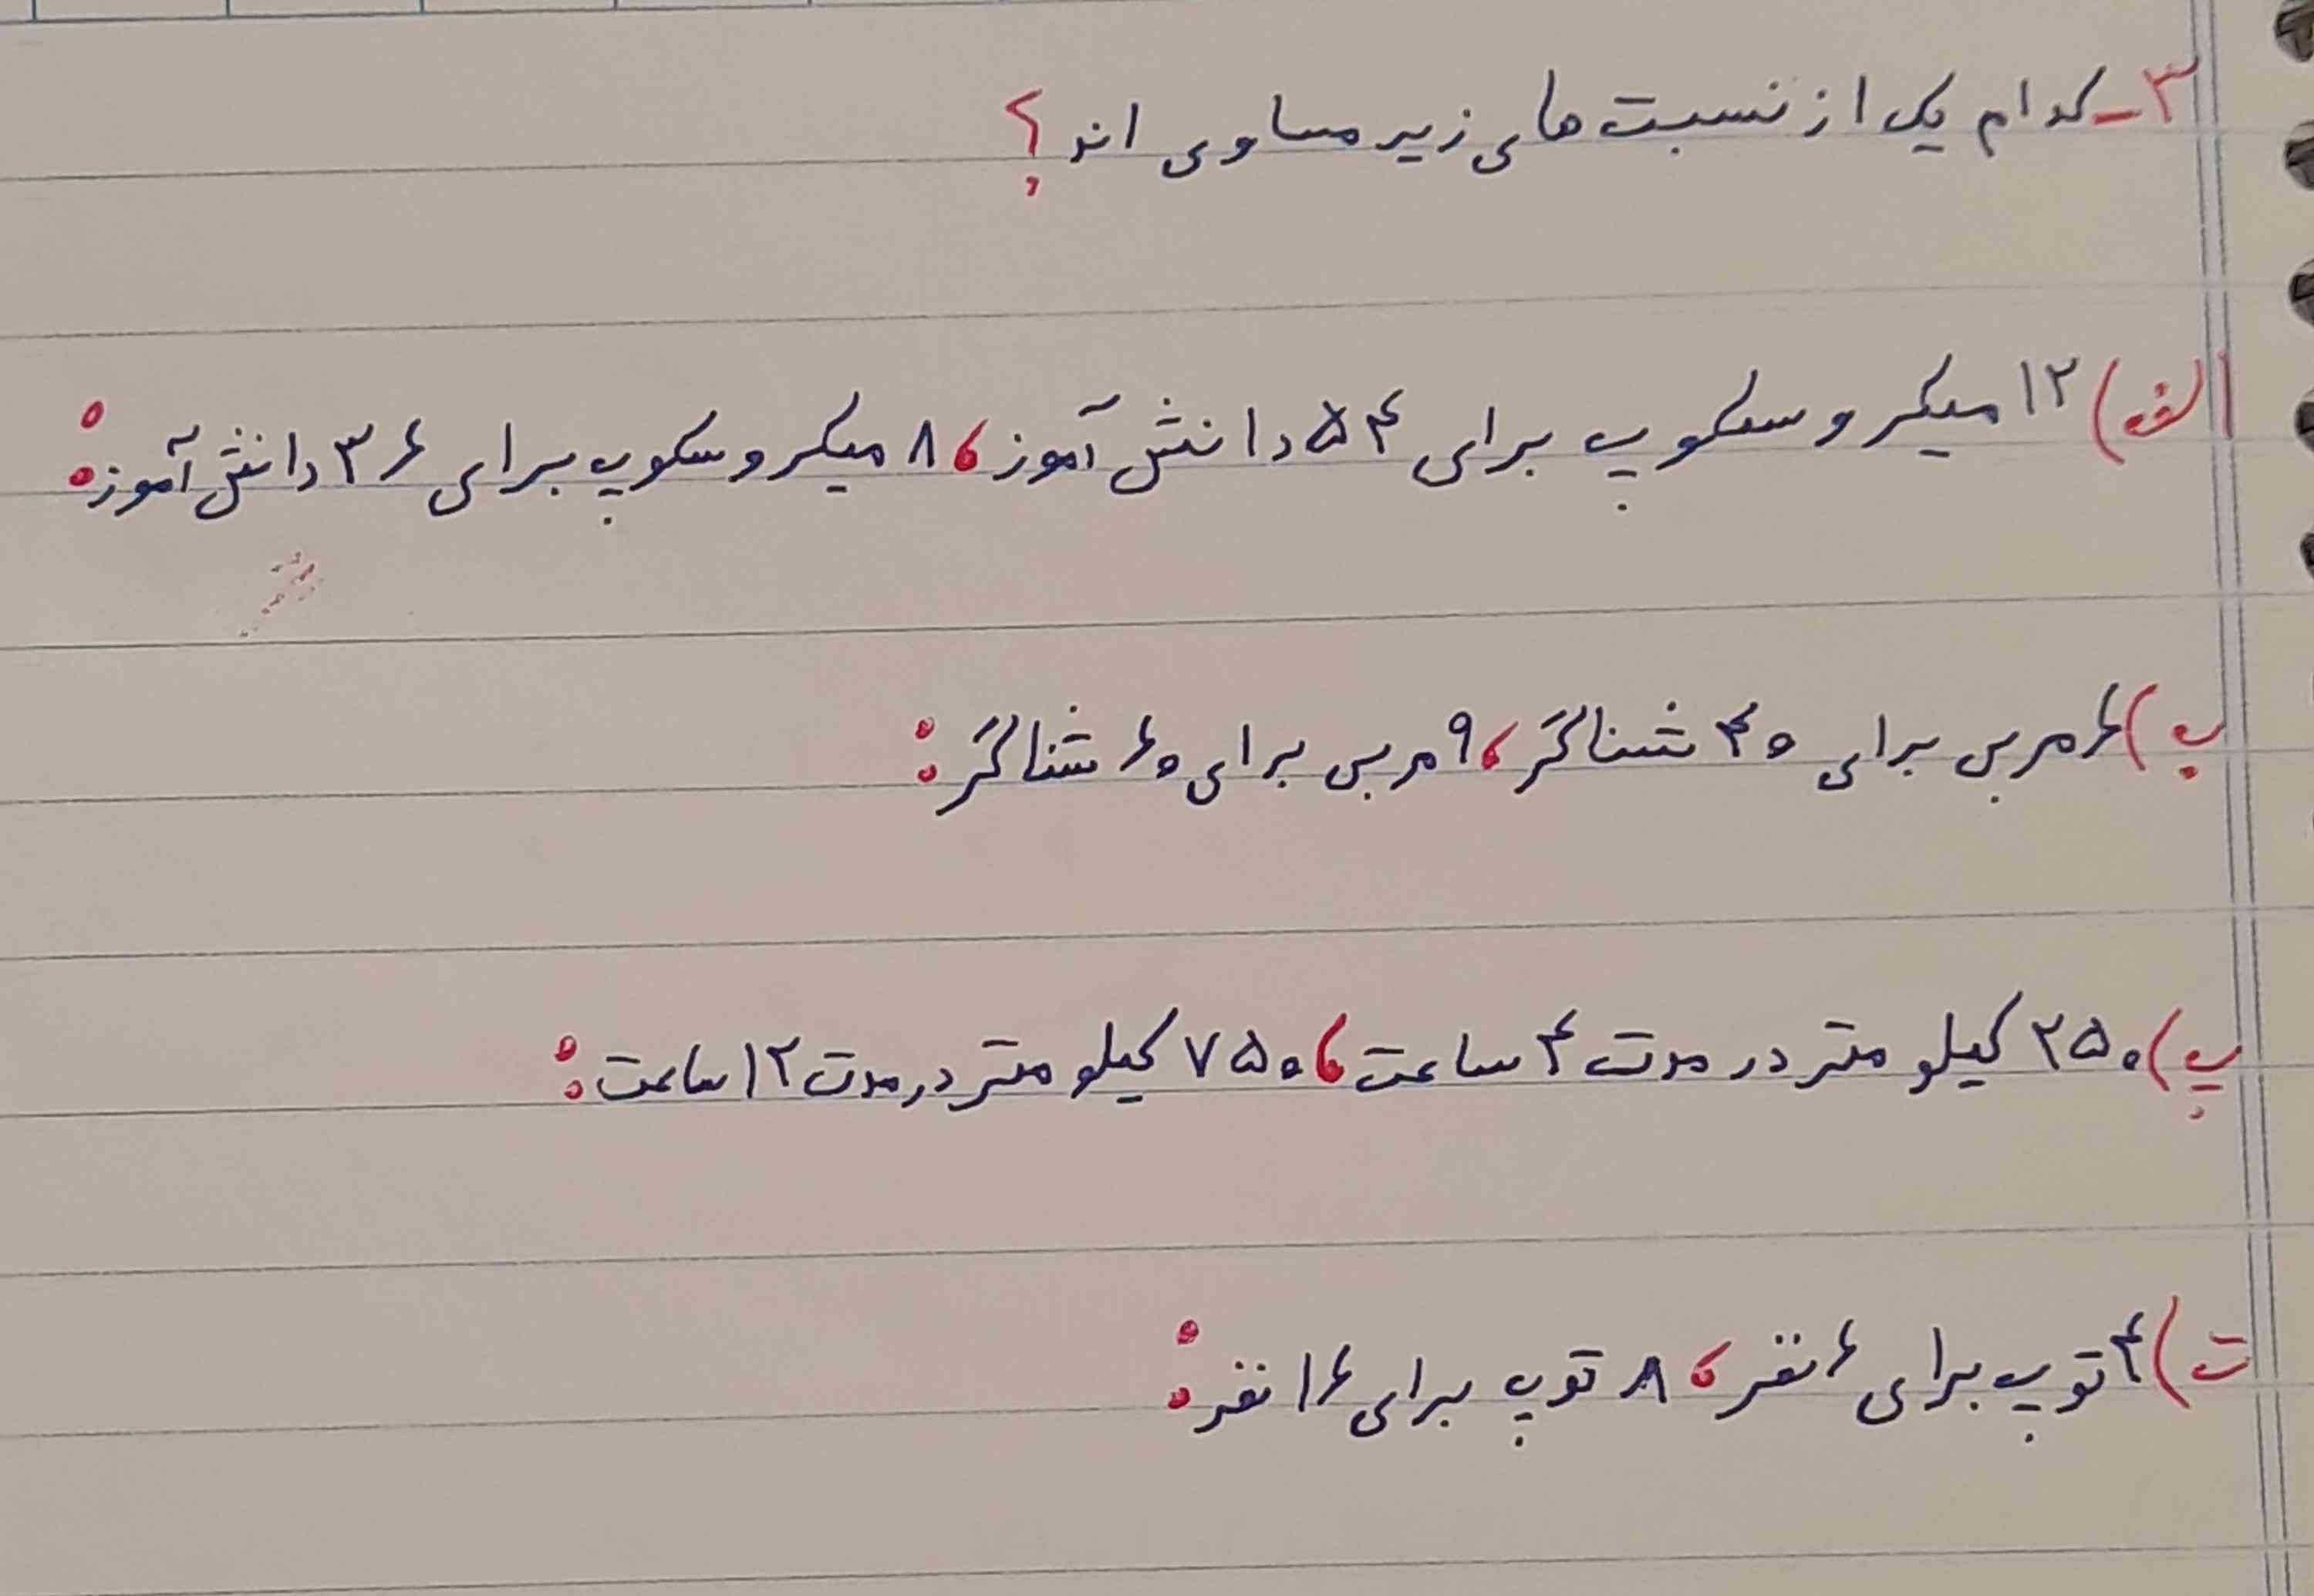 ۳- کدام یک از نسبت های زیر مساوی اند؟
الف) ۱۲ میکروسکوپ برای ۵۴ دانش آموز، ۸ میکروسکوپ برای ۳۶ دانش آموز:
ب) ۶ مربی برای ۴۰ شناگر، ۹ مربی برای ۶۰ شناگر:
پ) ۲۵۰ کیلومتر در مدت ۴ ساعت، ۷۵۰ کیلومتر در مدت ۱۲ ساعت:
ت) ۴ توپ برای ۶ نفر، ۸ توپ برای ۱۶ نفر: